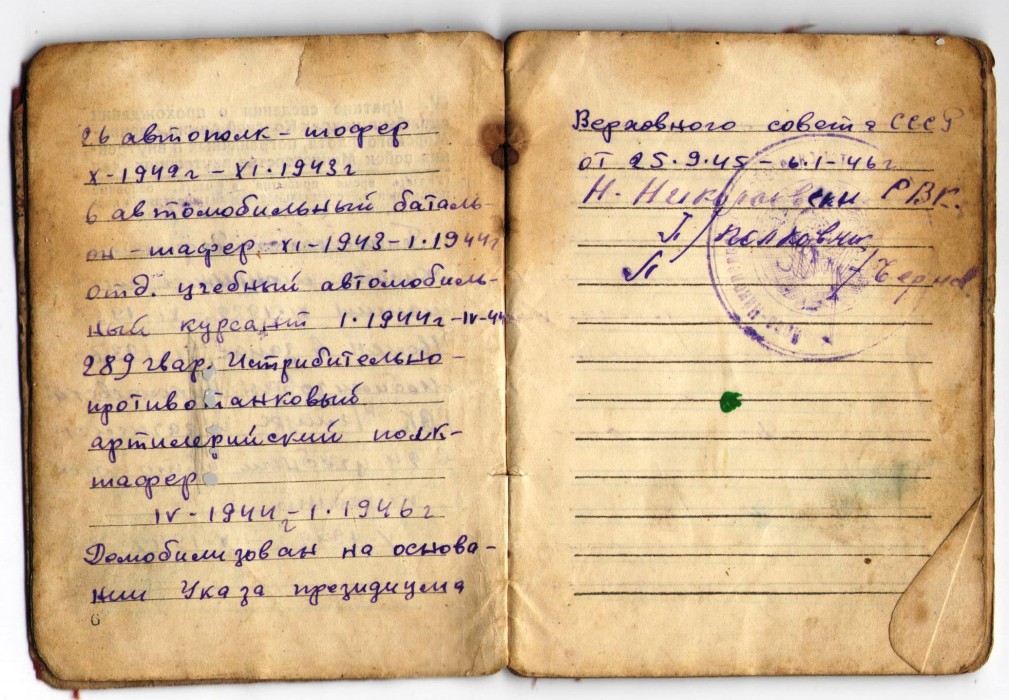 26 автополк - шофер
X-1942г - XI.1943г
6 автомобильный баталь-
он - шафер XI-1943-1.1944г
отд. учебный автомобиль-
ный курсант 1.1944г-IV-44
289 гвар. Истрибительно -
противотанковый
артилерийский полк-
шафер
IV-1944г-1.1946г
Демобилизован на основа-
нии Указа президиума
6
Верховного совета СССР
от 25.9.45 - 6.1-46г
РВК.
п/п полковник